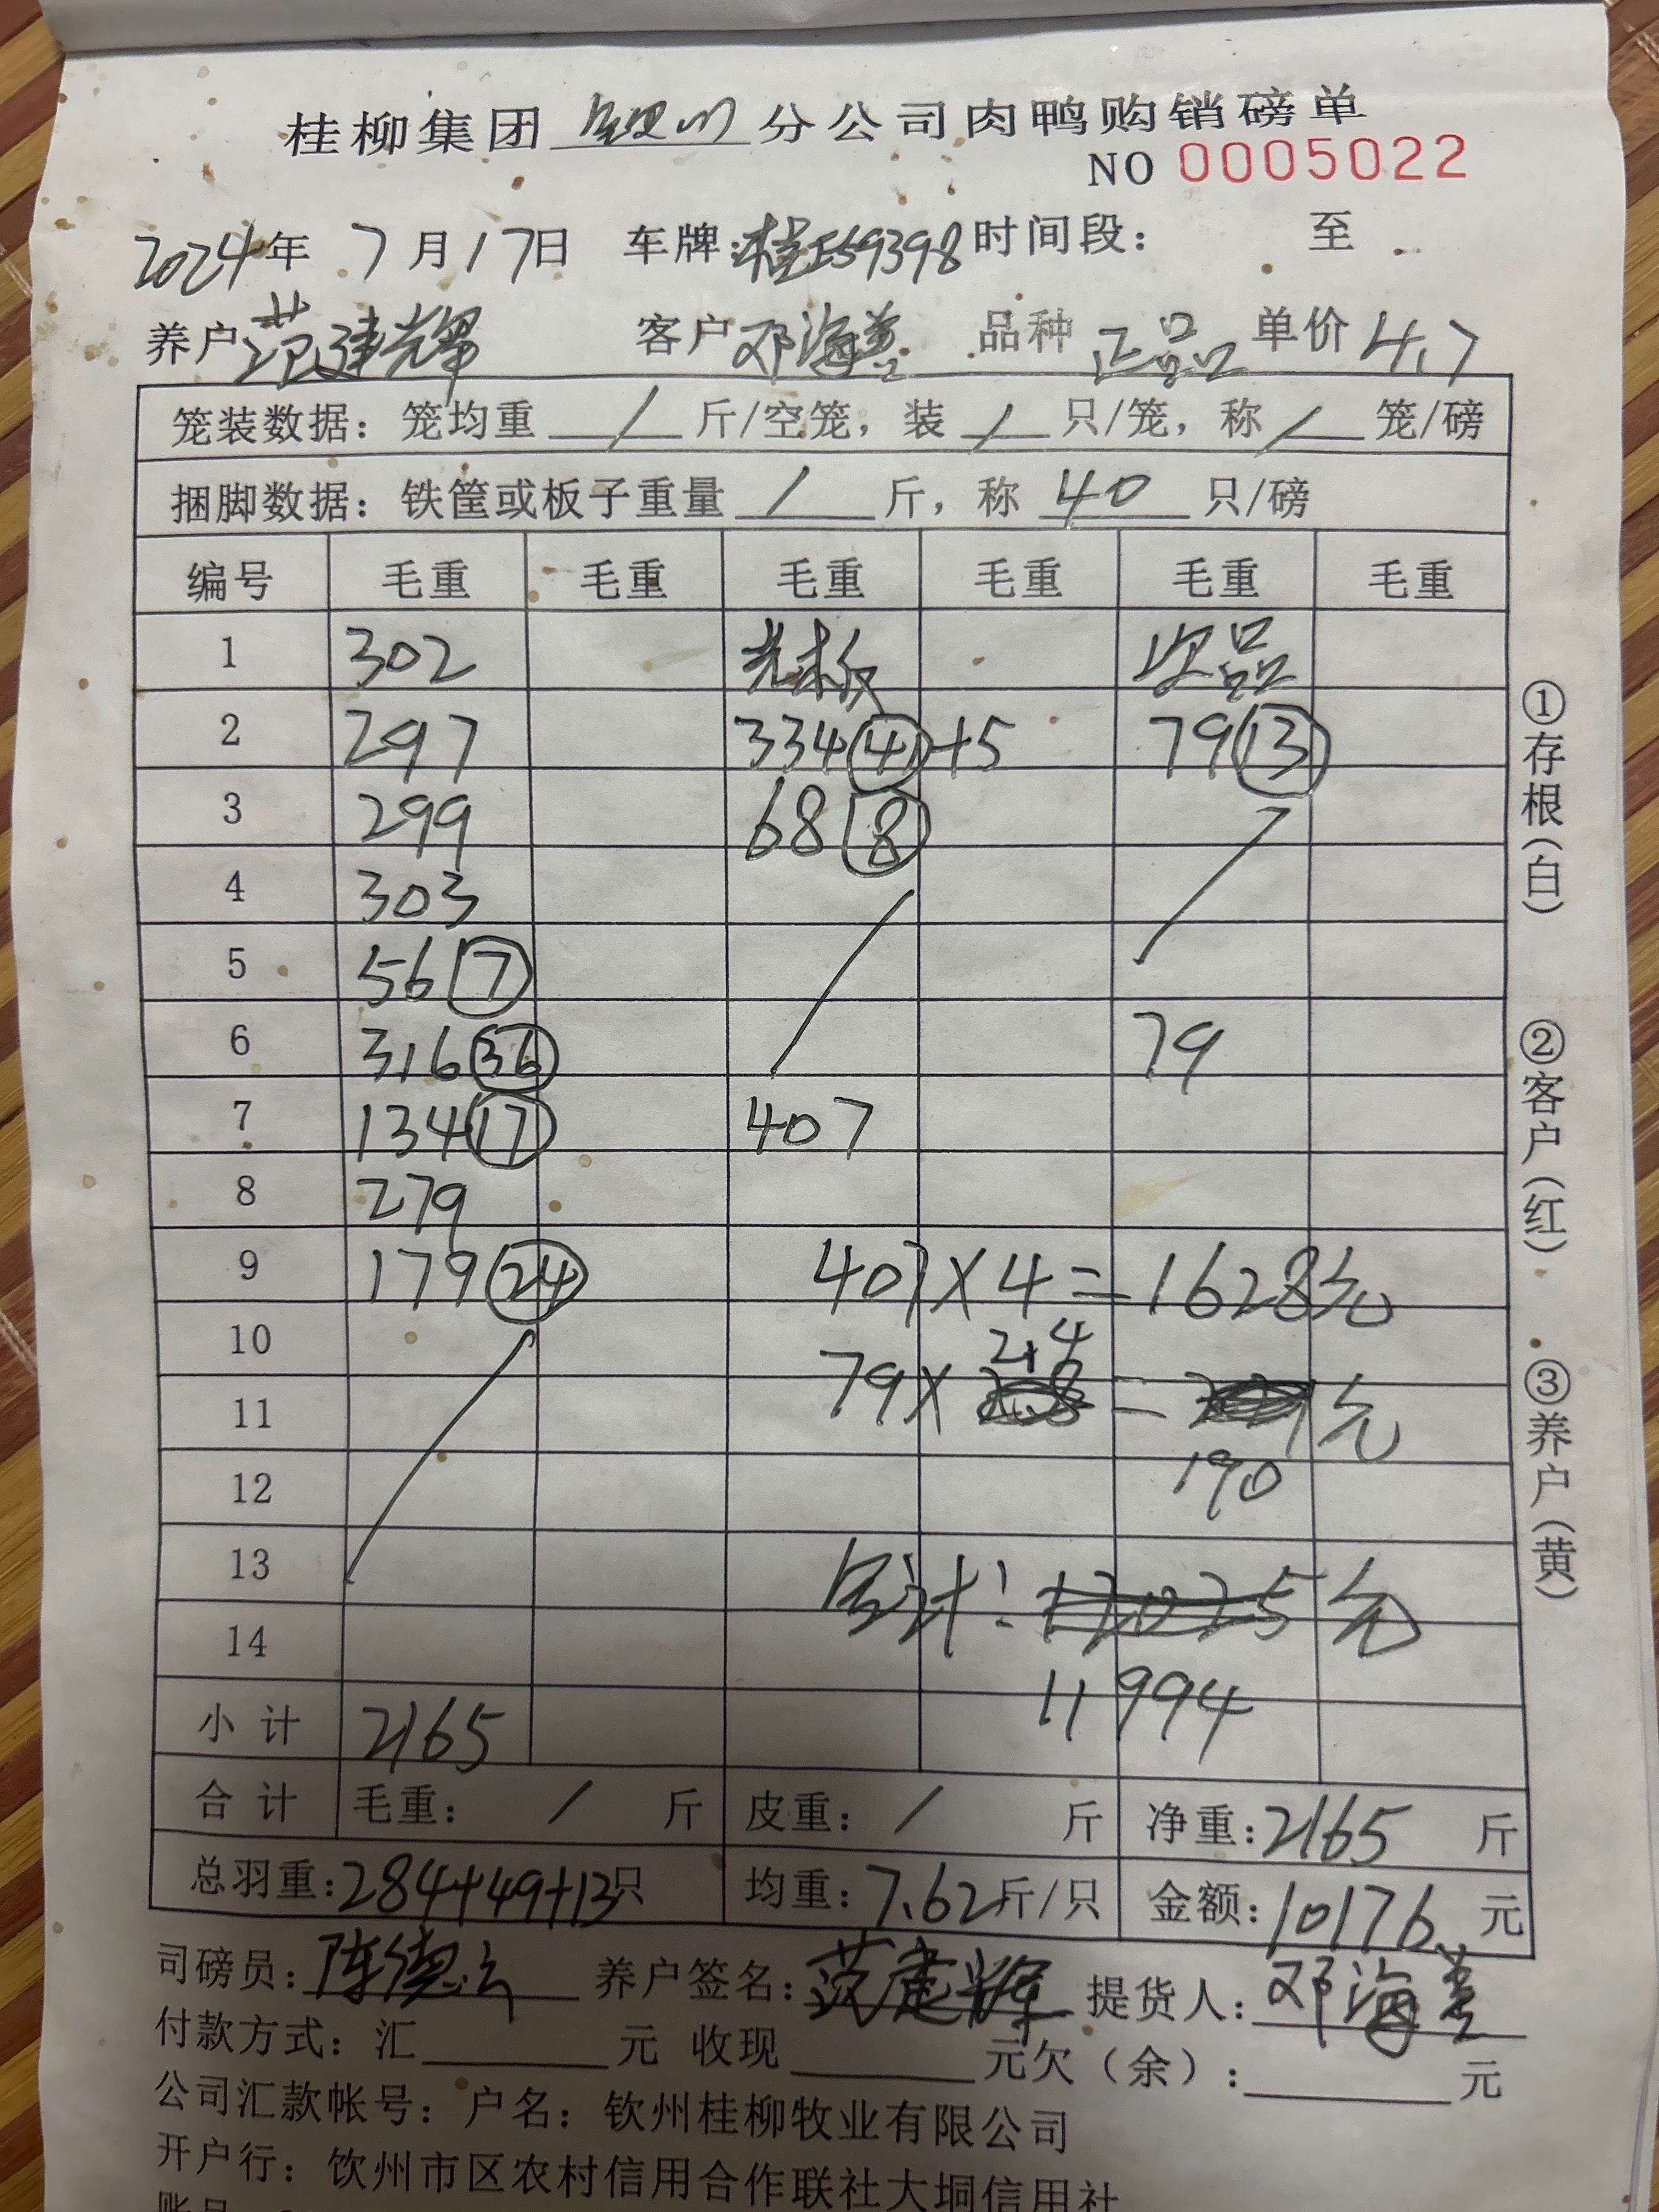 桂柳集团 钦州 分公司肉鸭购销磅单
NO 0005022
2024年 7月17日 车牌:桂E59398 时间段: 至
养户 范建辉 客户 邓海美 品种 正品 单价 4.7
笼装数据: 笼均重 / 斤/空笼, 装 / 只/笼, 称 / 笼/磅
捆脚数据: 铁筐或板子重量 / 斤, 称 40 只/磅
编号 毛重 毛重 毛重 毛重 毛重 毛重
1 302 次品
2 297 334 41 +5 79 13
3 299 68 8
4 303
5 56 7
6 316 36 79
7 134 17 407
8 279
9 179 24 407×4=1628元
10 2.4
11 79× = 元
12 190
13 合计: 12025 元
14
11994
小计 2165
合计 毛重: / 斤 皮重: / 斤 净重:2165 斤
总羽重:284+49+13只 均重:7.62斤/只 金额:10176 元
司磅员:陈德云 养户签名:范建辉 提货人:邓海美
付款方式: 汇 元 收现 元欠(余): 元
公司汇款帐号: 户名: 钦州桂柳牧业有限公司
开户行: 钦州市区农村信用合作联社大垌信用社
①存根(白) ②客户(红) ③养户(黄)